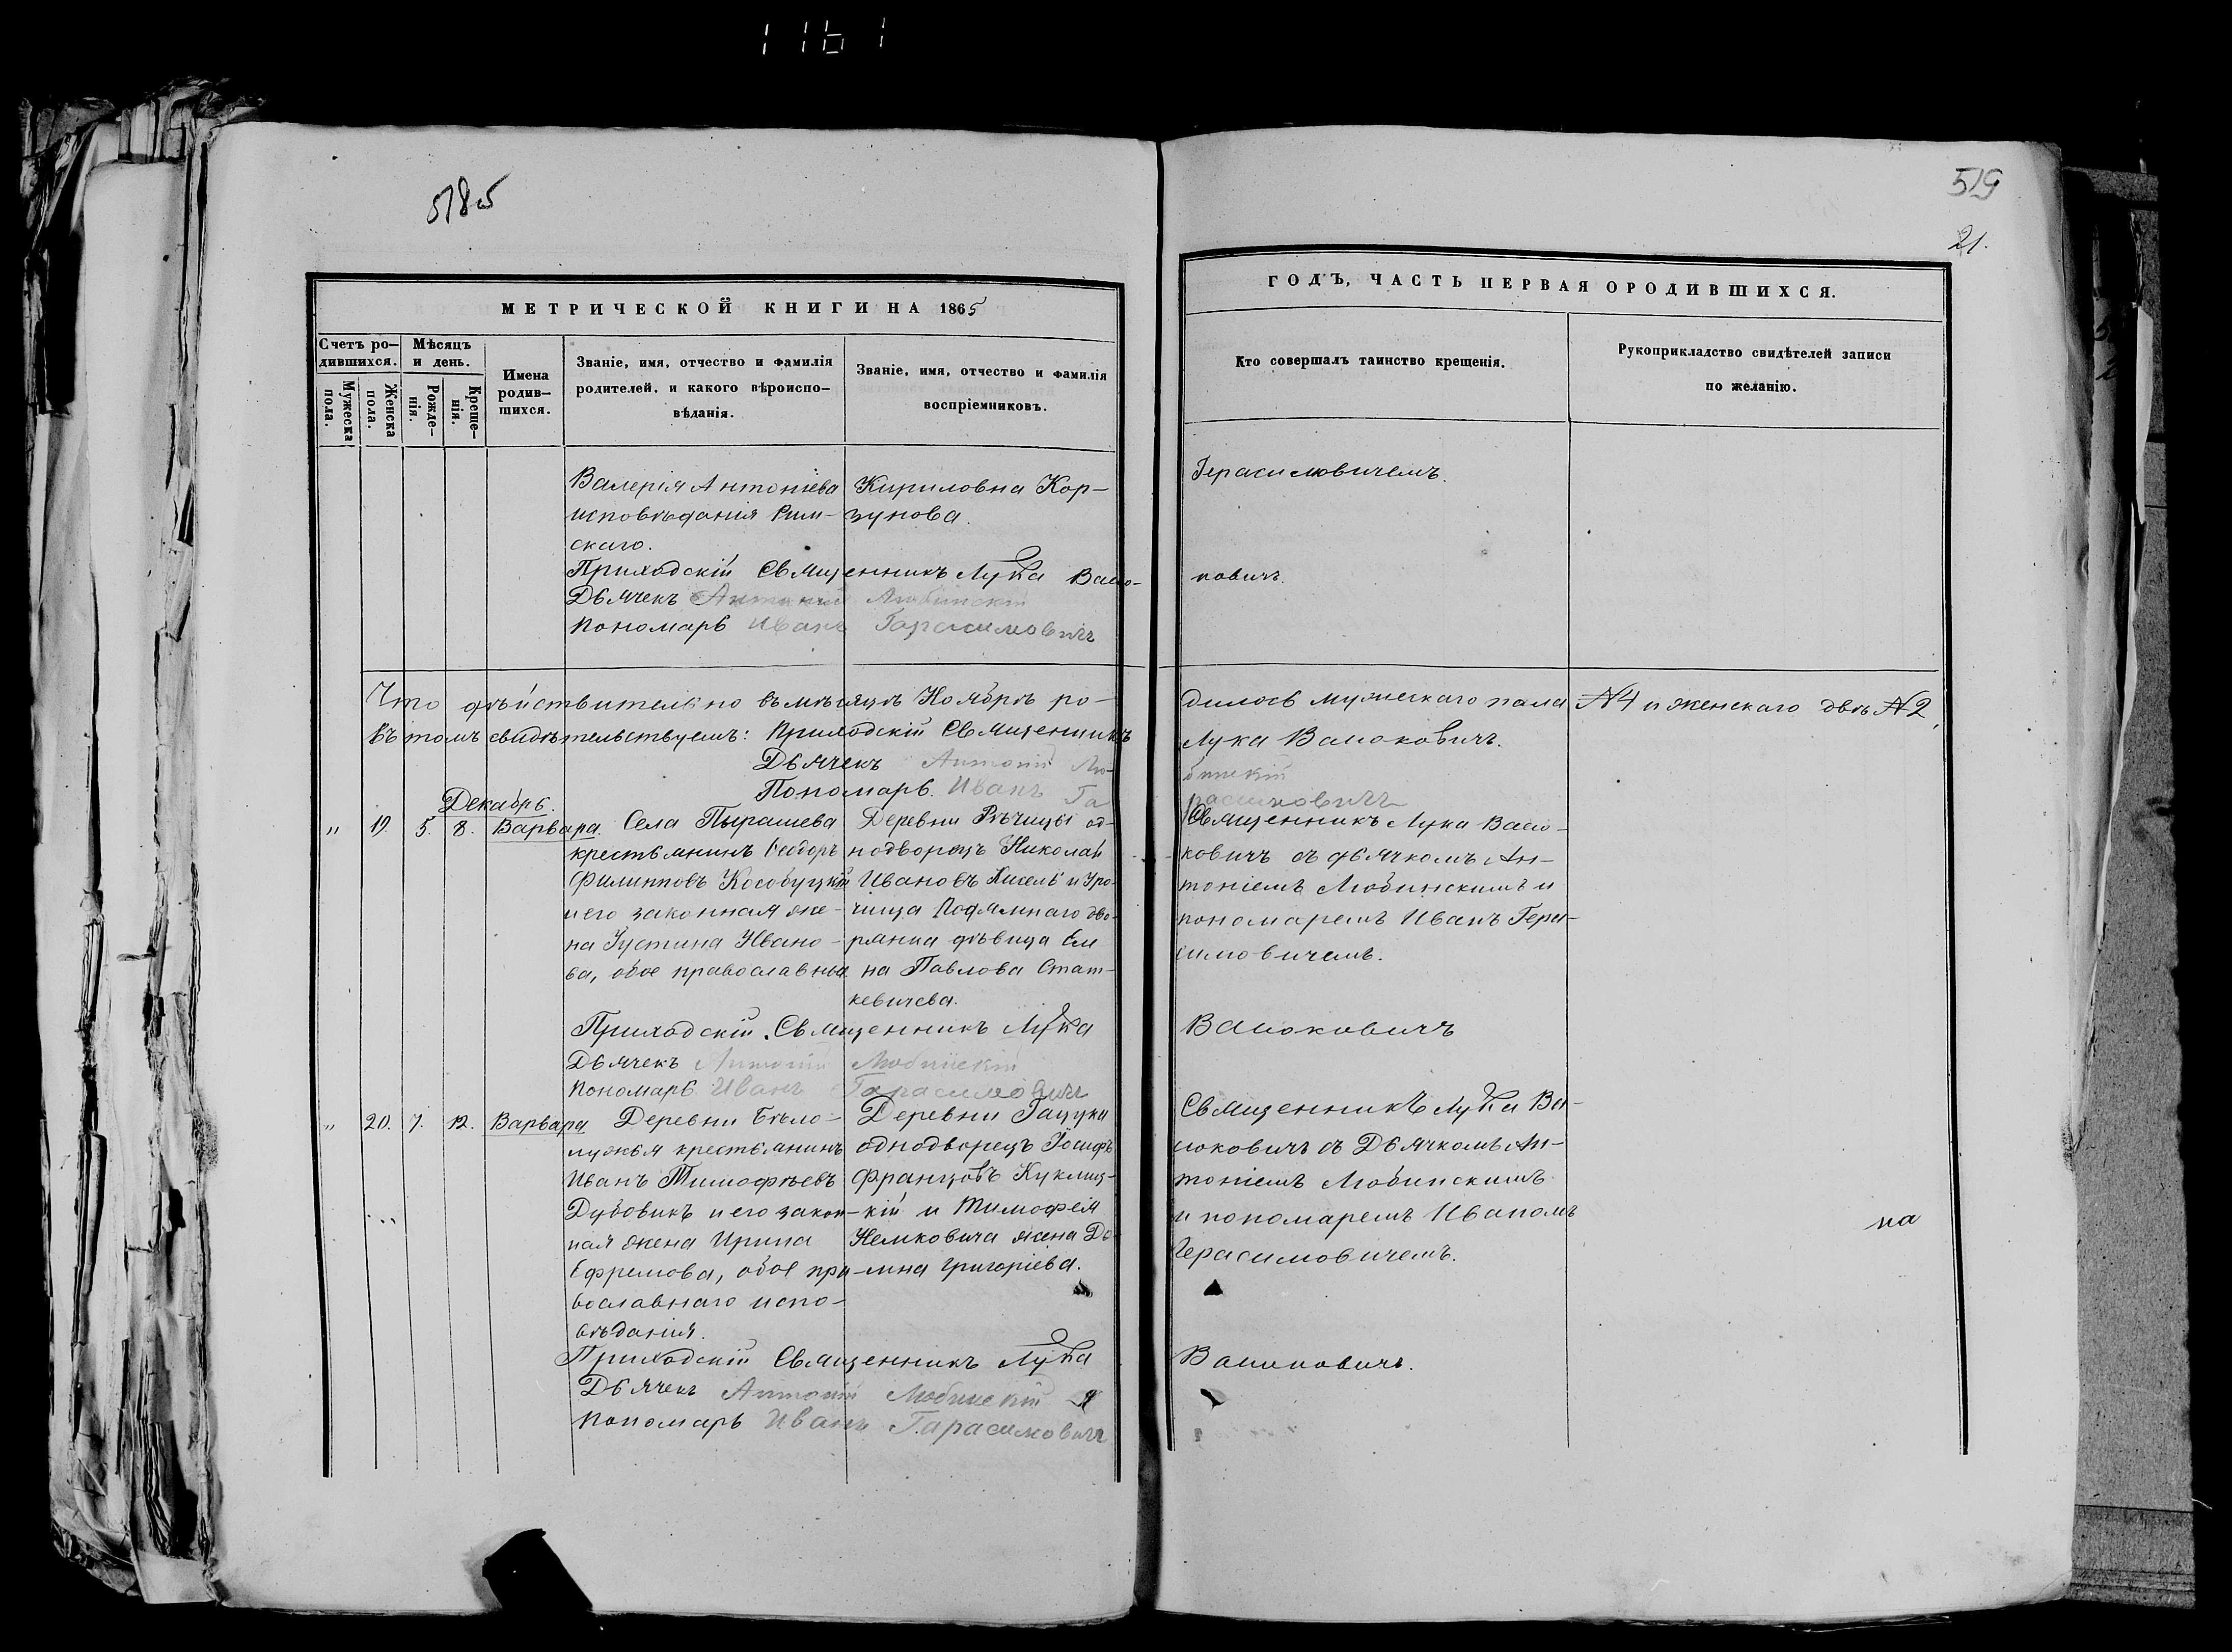 1161
5185
519
21.
МЕТРИЧЕСКОЙ КНИГИ НА 1865
ГОДЪ, ЧАСТЬ ПЕРВАЯ ОРОДИВШИХСЯ.
Счетъ ро-
дившихся.
Мужеска пола.
Женска пола.
Мѣсяцъ
и день.
Рожде-
нія.
Креще-
нія.
Имена
родив-
шихся.
Званіе, имя, отчество и фамилія
родителей, и какого вѣроиспо-
вѣданія.
Званіе, имя, отчество и фамилія
воспріемниковъ.
Кто совершалъ таинство крещенія.
Рукоприкладство свидѣтелей записи
по желанію.
Валерія Антоніева
исповѣданія Рим-
скаго.
Кириловна Кор-
зунова.
Герасимовичемъ.
Приходскій Священникъ Лука Васю-
ковичъ.
Дьячекъ Антоній Любинскій
Пономарь Иванъ Гарасимовичъ
Что дѣйствительно въ мѣсяцѣ Ноябрѣ ро-
дилось мужескаго пола №4 и женскаго двѣ №2,
въ томъ свидѣтельствуемъ: Приходскій Священникъ
Лука Васюковичъ.
Дьячекъ Антоній Лю-
бинскій
Пономарь Иванъ Га
расимовичъ
Декабрь.
" 19. 5. 8. Варвара.
Села Пырашева
крестьянинъ Ѳеодоръ
Филипповъ Кособуцкій
и его законная же-
на Іустина Ивано-
ва, обое православные
Деревни Рѣчицы од-
нодворецъ Николай
Ивановъ Кисель и Уро-
чища дво-
рянка дѣвица Еле
на Павлова Стат-
кевичева.
Священникъ Лука Васю-
ковичъ съ дьячкомъ Ан-
тоніемъ Любинскимъ и
пономаремъ Иванъ Гера-
симовичемъ.
Приходскій Священникъ Лука
Васюковичъ
Дьячекъ Антоній Любинскій
Пономарь Иванъ Гарасимовичъ
" 20. 7. 12. Варвара
Деревни Бѣло-
лужья крестьянинъ
Иванъ Тимофѣевъ
Дубовикъ и его закон-
ная жена Ирина
Ефремова, обое пра-
вославнаго испо-
вѣданія.
Деревни Гацуки
однодворецъ Іосифъ
Францовъ Куклиц-
кій и Тимофея
Немковича жена До-
мна Григоріева.
Священникъ Лука Ва-
сюковичъ съ Дьячкомъ Ан-
тоніемъ Любинскимъ
и пономаремъ Иваномъ
Герасимовичемъ.
на
Приходскій Священникъ Лука
Васюковичъ.
Дьячекъ Антоній Любинскій
Пономарь Иванъ Гарасимовичъ